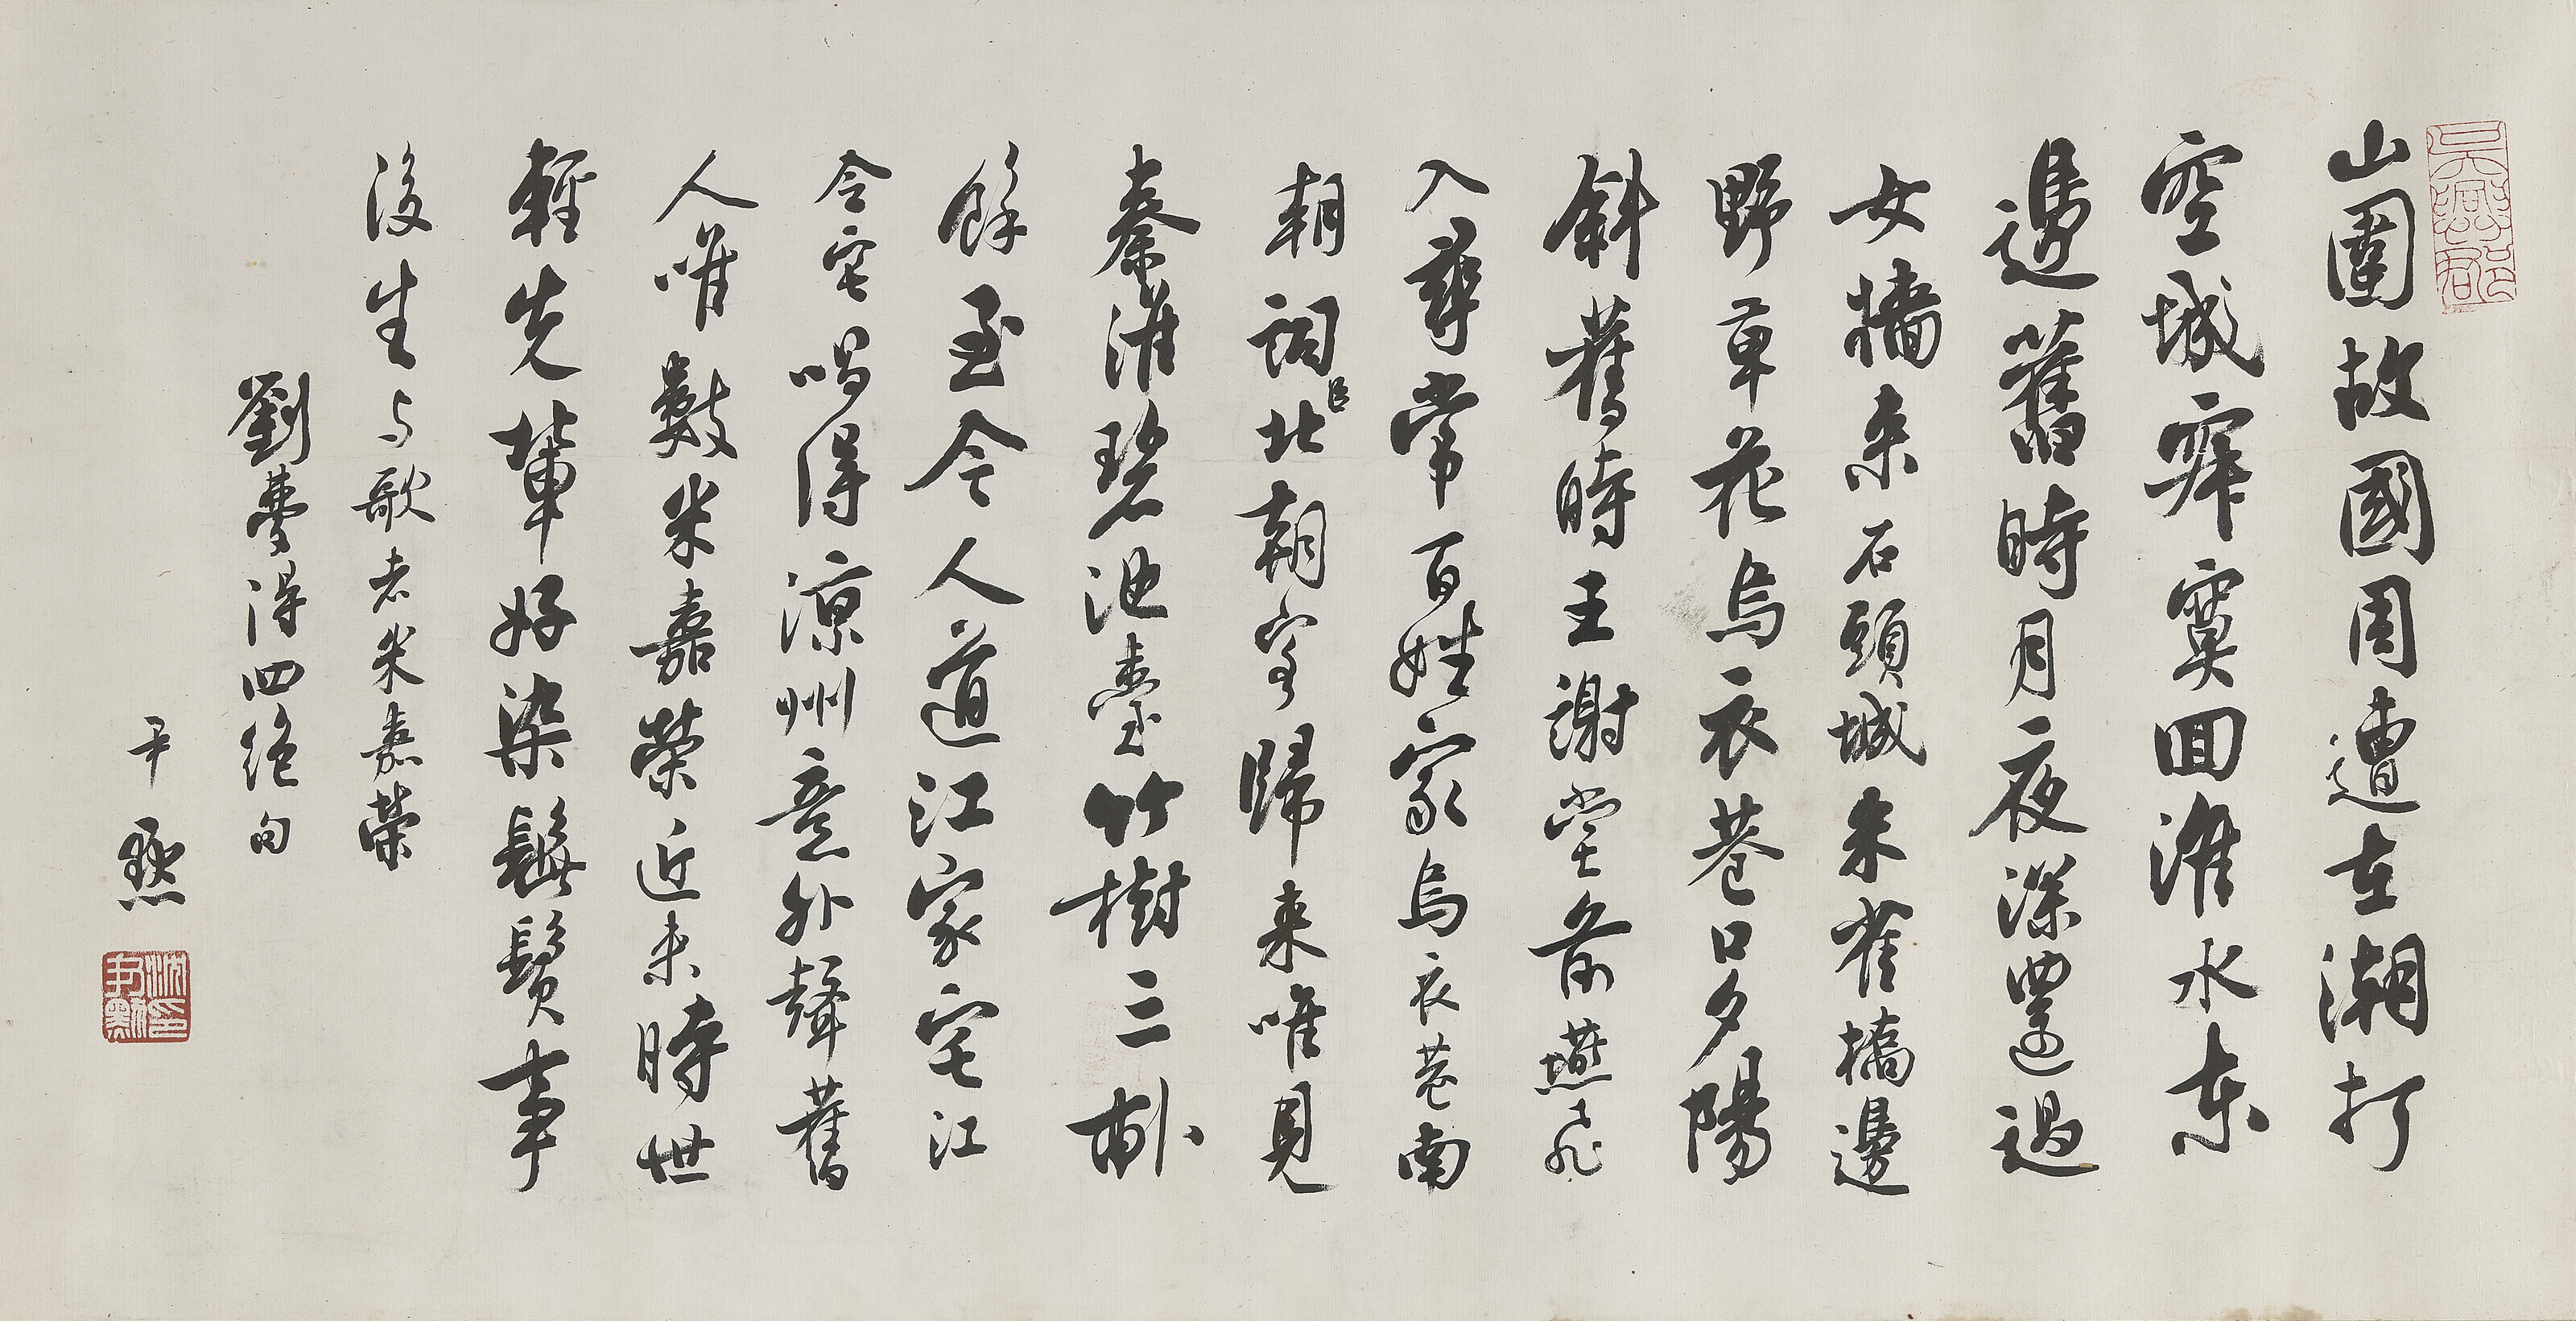 山圍故國周遭在潮打
空城寂寞回淮水東
邊舊時月夜深還過
女牆來石頭城朱雀橋邊
野草花烏衣巷口夕陽
斜舊時王謝堂前燕飛
入尋常百姓家烏衣巷南
朝詞臣北朝客歸來唯見
秦淮碧池臺竹樹三畝
餘至今人道江家宅江
令宅唱得涼州意外聲舊
人唯數米嘉榮近來時世
輕先輩好染髭鬚事
後生与歌者米嘉榮
劉夢得四絕句
尹默
沈尹默印